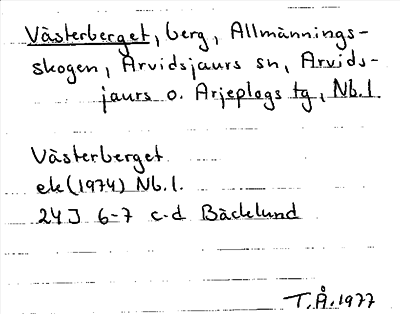 Västerberget, berg, Allmännings-
skogen, Arvidsjaurs sn, Arvids-
jaurs o. Arjeplogs tg, Nb.l.
Västerberget
ek(1974) Nb.l.
24J 6-7 c-d Bäcklund
T.Å.1977